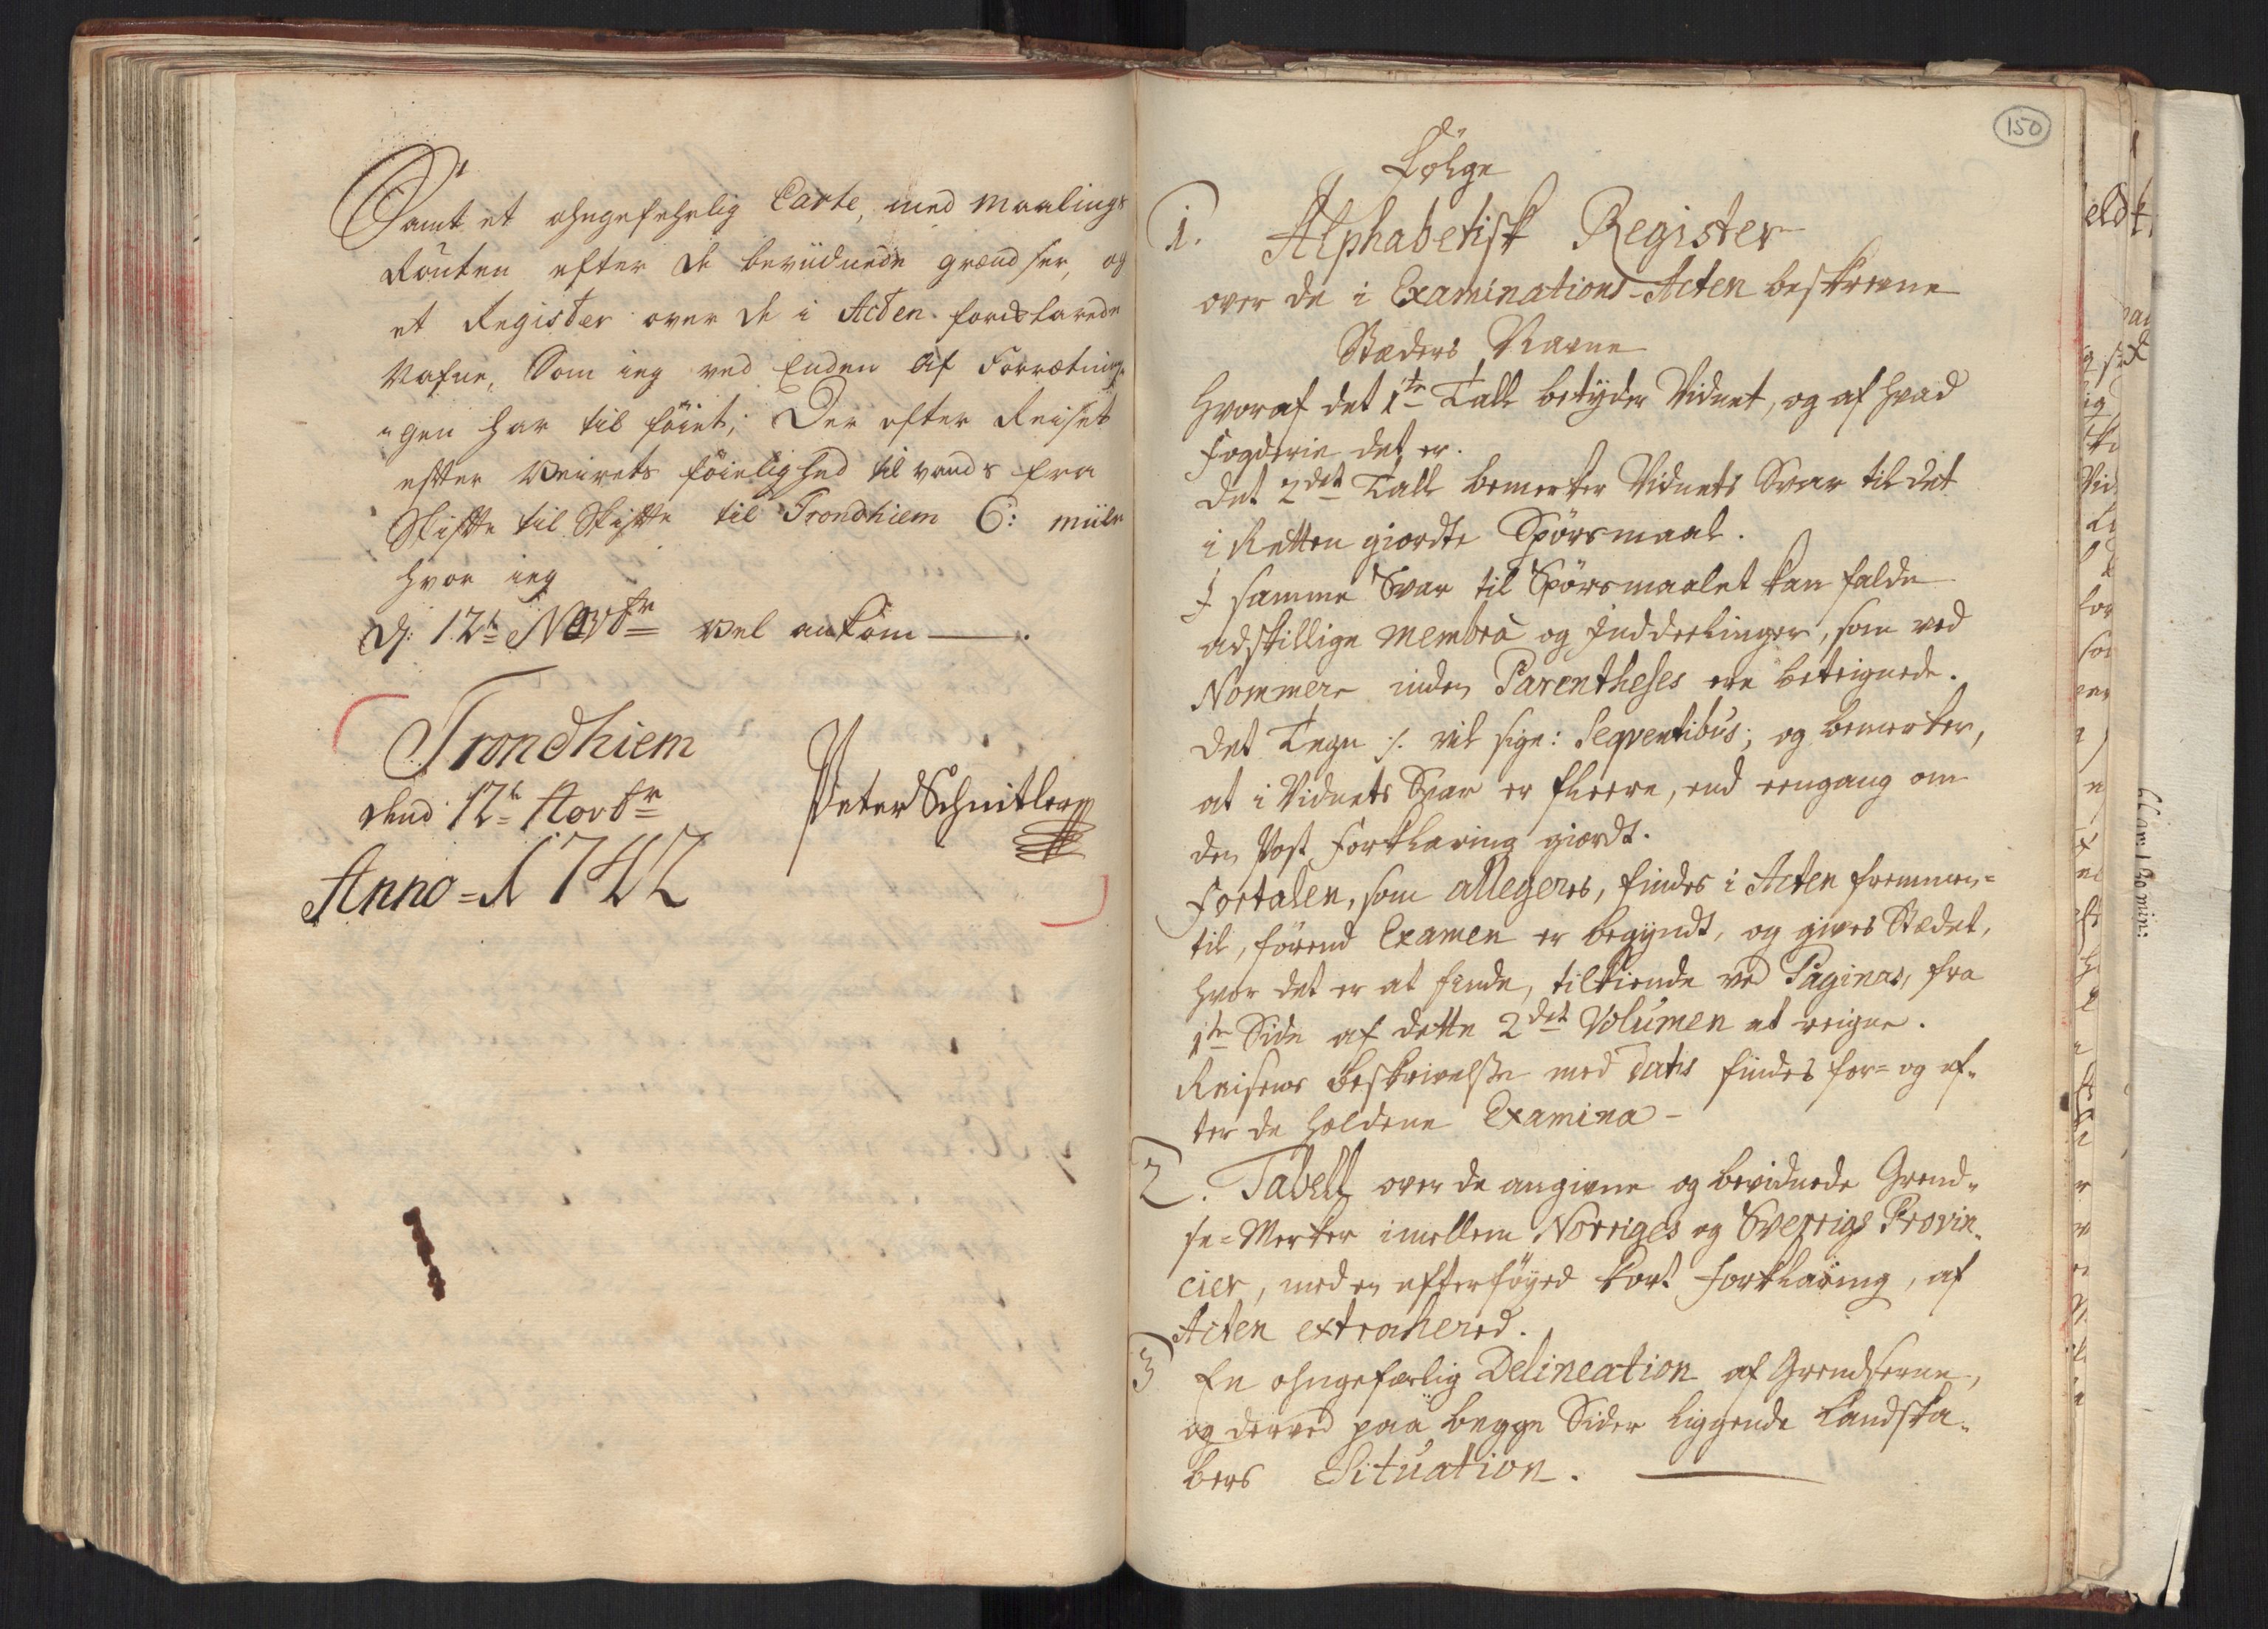 Samt et ohngefehrlig Carte, med Maalings
Routen efter de beviidnede grændser, og
et Register over de i Acten forklarede
Nafne, Som ieg ved Enden af Forrætning-
-gen har til föiet; Der efter Reiset
efter Veirets föielighed til vands fra
Skifte til Skifte til Trondhiem 6: miile
hvor ieg
d: 12te Novbr vel ankom.
Trondhiem
dend 12te Novbr
Anno=1742
Peter Schnitler
150
Fölge
1. Alphabetisk Register
over de i Examinations-Acten beskrevne
Stæders Navne
Hvoraf det 1te Tall betyder Vidnet, og af hvad
Fogderie det er.
Det 2det Tall bemerker Vidnets Svar til det
i Retten giordte Spörsmaal.
I samme Svar til Spörsmaalet kan falde
adskillige Membra og Inddeelinger, som ved
Nommere inden Parentheses ere beteignede.
Det Tegn ·/. vil sige: Seqventibus; og bemerker,
at i Vidnets Svar er fleere, end eengang om
den Post Forklaring giordt.
Fortalen, som allegeres, findes i Acten fremmen=
til, förend Examen er begyndt, og gives Stædet,
hvor det er at finde, tilkiende ved Paginas, fra
1te Side af dette 2det Volumen at reigne.
Reisens Beskrivelse med Datis findes for= og ef-
ter de holdene Examina -
2. Tabell over de angivne og bevidnede Grend-
se=Merker imellem Norriges og Sverrigs Provin-
cier, med en efterföyed kort Forklaring, af
Acten extrahered.
3 En ohngefærlig Delineation af Grendserne,
og derved paa begge Sider liggende Landska-
bers Situation.